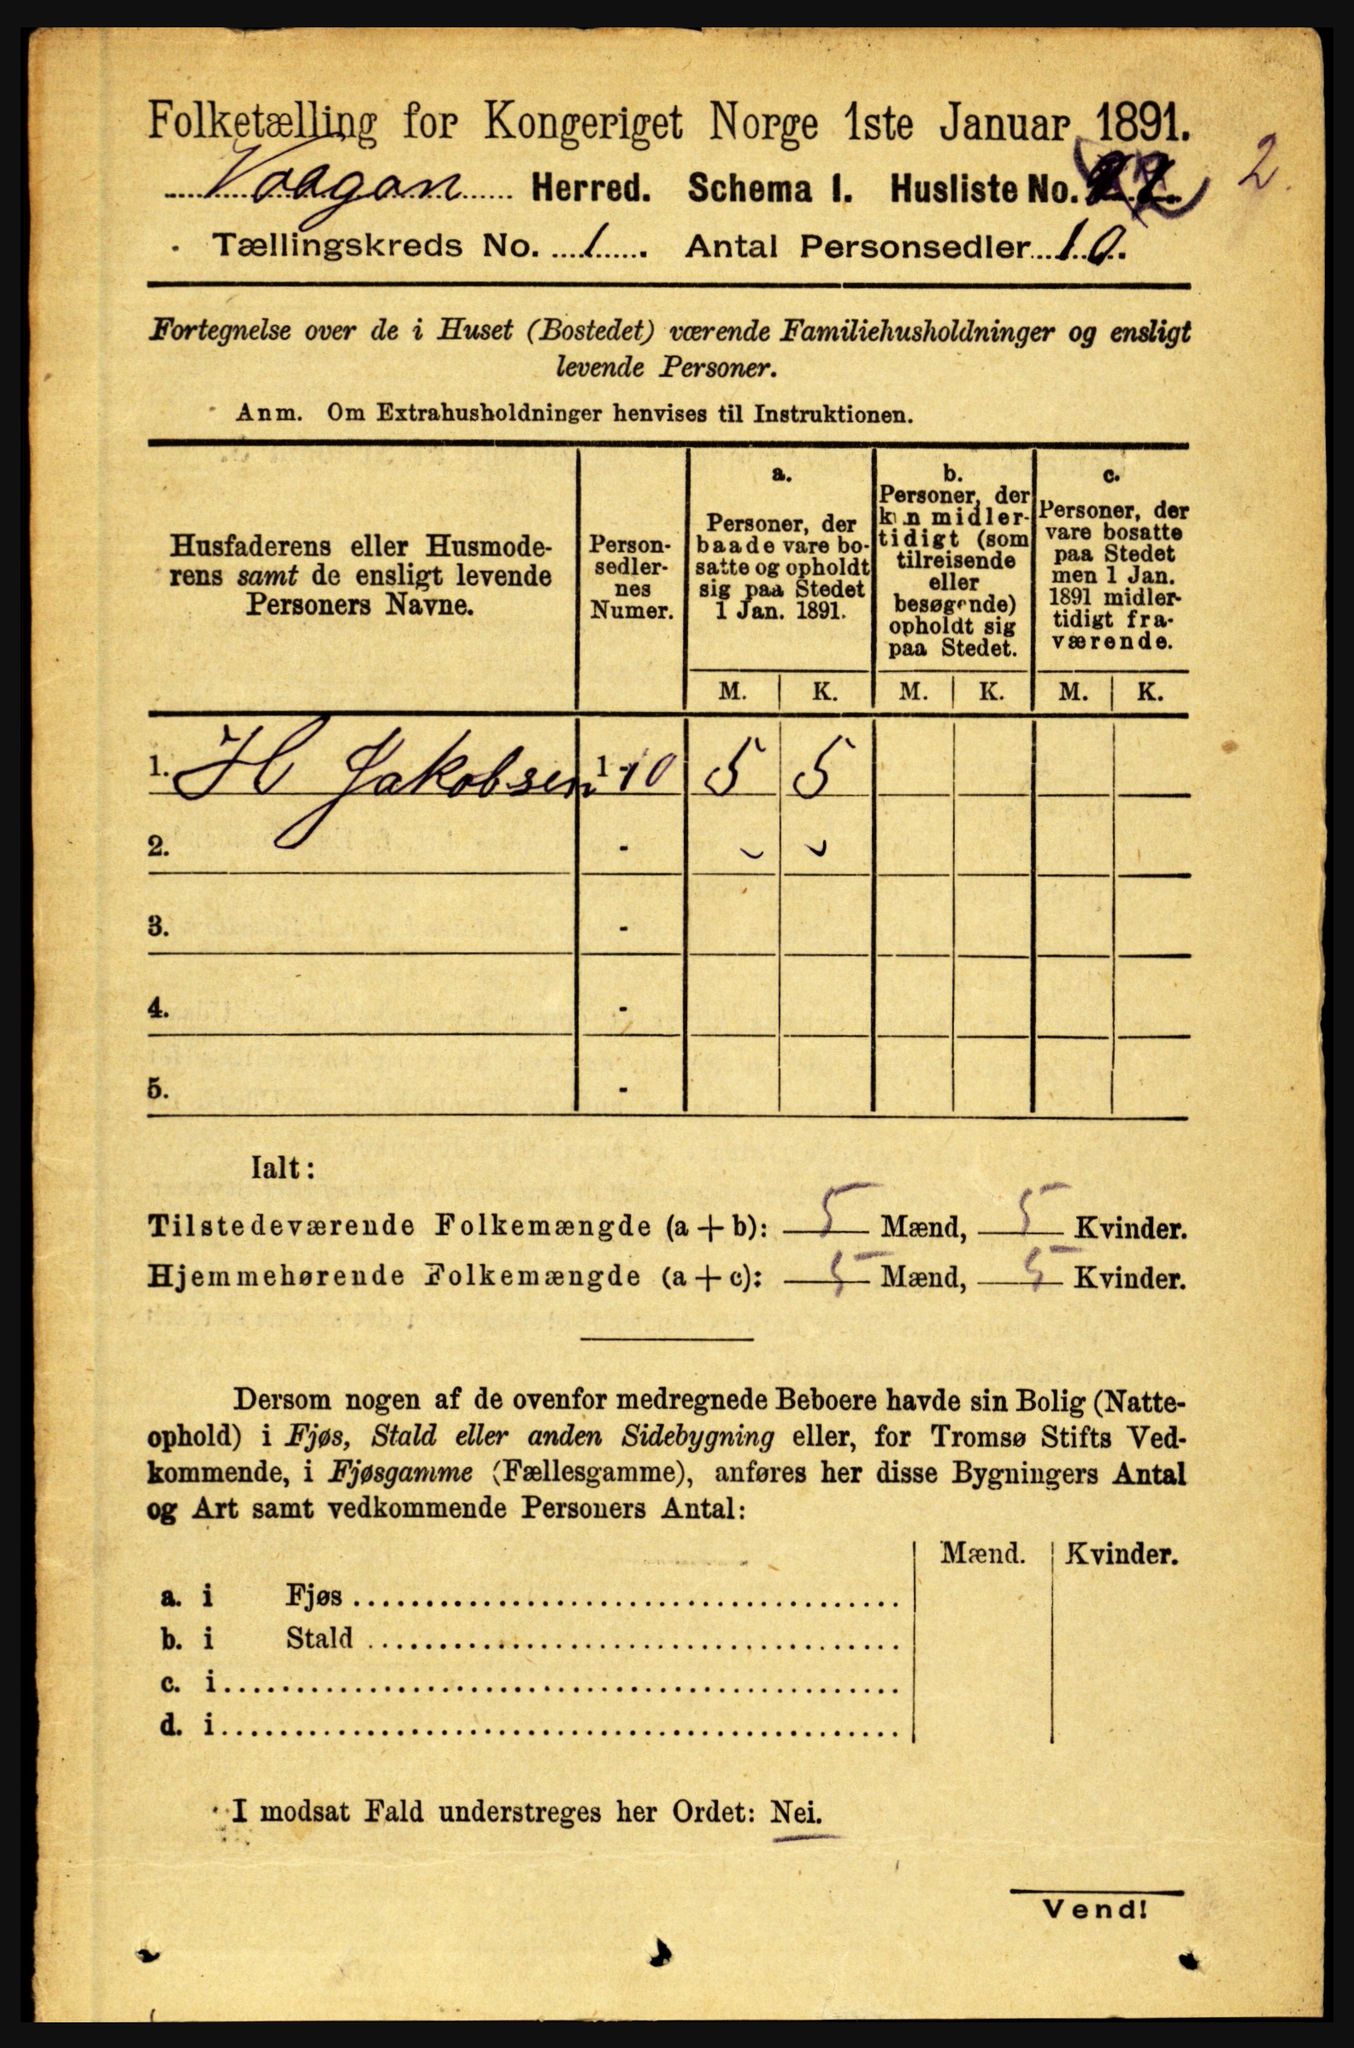 Folketælling for Kongeriget Norge 1ste Januar 1891.
Vaagan Herred. Schema I. Husliste No. 2
Tællingskreds No. 1. Antal Personsedler 10.
Fortegnelse over de i Huset (Bostedet) værende Familiehusholdninger og ensligt
levende Personer.
Anm. Om Extrahusholdninger henvises til Instruktionen.
Husfaderens eller Husmode-
rens samt de ensligt levende
Personers Navne.
Person-
sedler-
nes
Numer.
a.
Personer, der
baade vare bo-
satte og opholdt
sig paa Stedet
1 Jan. 1891.
b.
Personer, der
kun midler-
tidigt (som
tilreisende
eller
besøgende)
opholdt sig
paa Stedet.
c.
Personer, der
vare bosatte
paa Stedet
men 1 Jan.
1891 midler-
tidigt fra-
værende.
M. K. M. K. M. K.
1. H Jakobsen 1-10 5 5
2. -
3. -
4. -
5. -
Ialt:
Tilstedeværende Folkemængde (a + b): 5 Mænd, 5 Kvinder.
Hjemmehørende Folkemængde (a + c): 5 Mænd, 5 Kvinder.
Dersom nogen af de ovenfor medregnede Beboere havde sin Bolig (Natte-
ophold) i Fjøs, Stald eller anden Sidebygning eller, for Tromsø Stifts Ved-
kommende, i Fjøsgamme (Fællesgamme), anføres her disse Bygningers Antal
og Art samt vedkommende Personers Antal:
Mænd. Kvinder.
a. i Fjøs
b. i Stald
c. i
d. i
I modsat Fald understreges her Ordet: Nei.
Vend!